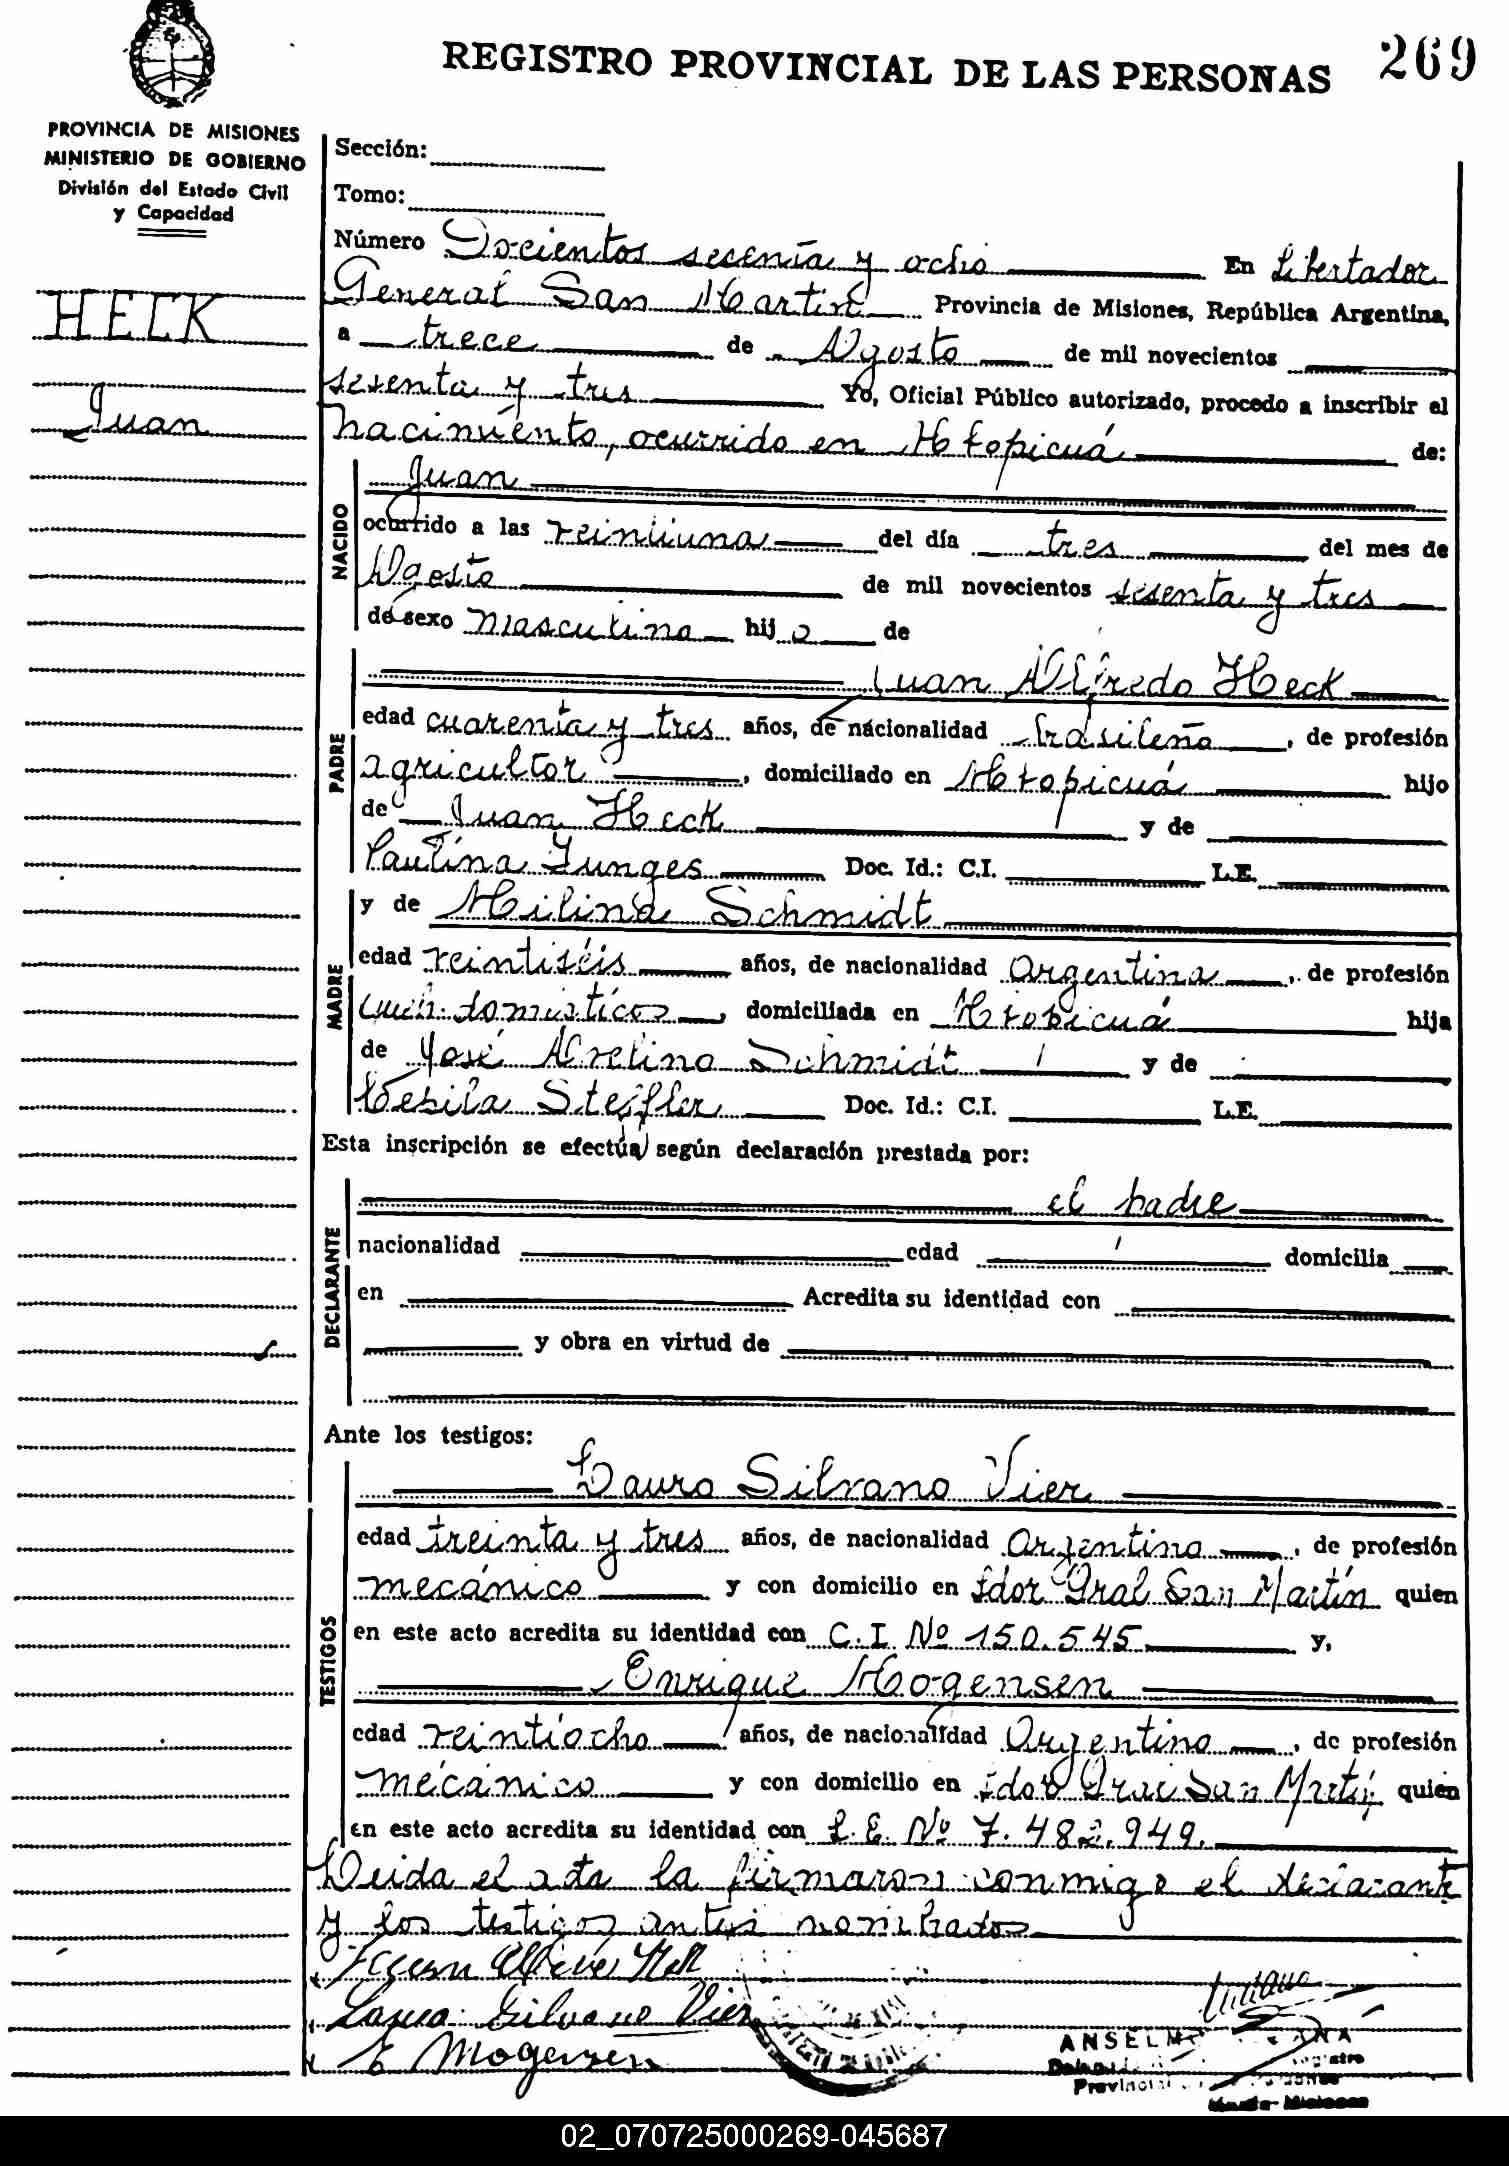 269
REGISTRO PROVINCIAL DE LAS PERSONAS
PROVINCIA DE MISIONES
MINISTERIO DE GOBIERNO
División del Estado Civil
y Capacidad
HECK
Juan
Sección:
Tomo:
Número Docientos secenta y ocho En Libertador
General San Martín Provincia de Misiones, República Argentina,
a trece de Agosto de mil novecientos
sesenta y tres Yo, Oficial Público autorizado, procedo a inscribir el
nacimiento, ocurrido en Mtopicuá de:
NACIDO
Juan
ocurrido a las veintiuna del día tres del mes de
Agosto de mil novecientos sesenta y tres
de sexo masculino hijo de
PADRE
Juan Alfredo Heck
edad cuarenta y tres años, de nacionalidad brasileña, de profesión
agricultor, domiciliado en Mtopicuá hijo
de Juan Heck y de
Paulina Junges Doc. Id.: C.I. L.E.
MADRE
y de Milina Schmidt
edad veintiséis años, de nacionalidad argentina, de profesión
domésticos, domiciliada en Mtopicuá hija
de José Avelino Schmidt y de
Steifler Doc. Id.: C.I. L.E.
Esta inscripción se efectúa según declaración prestada por:
DECLARANTE
el padre
nacionalidad edad domicilia
en Acredita su identidad con
y obra en virtud de
Ante los testigos:
TESTIGOS
Lauro Silvano Vier
edad treinta y tres años, de nacionalidad Argentino, de profesión
mecánico y con domicilio en Ldor Gral San Martín quien
en este acto acredita su identidad con C.I. Nº 150.545 y,
Enrique Mogensen
edad veintiocho años, de nacionalidad Argentino, de profesión
mecánico y con domicilio en Ldor Gral San Martín quien
en este acto acredita su identidad con L.E. Nº 7.482.949.
Leida el acta la firmaron conmigo el declarante
y los testigos antes nombrados
Heck
Lauro Silvano Vier
E Mogensen
ANSELM
Provincial
Misiones
02_070725000269-045687